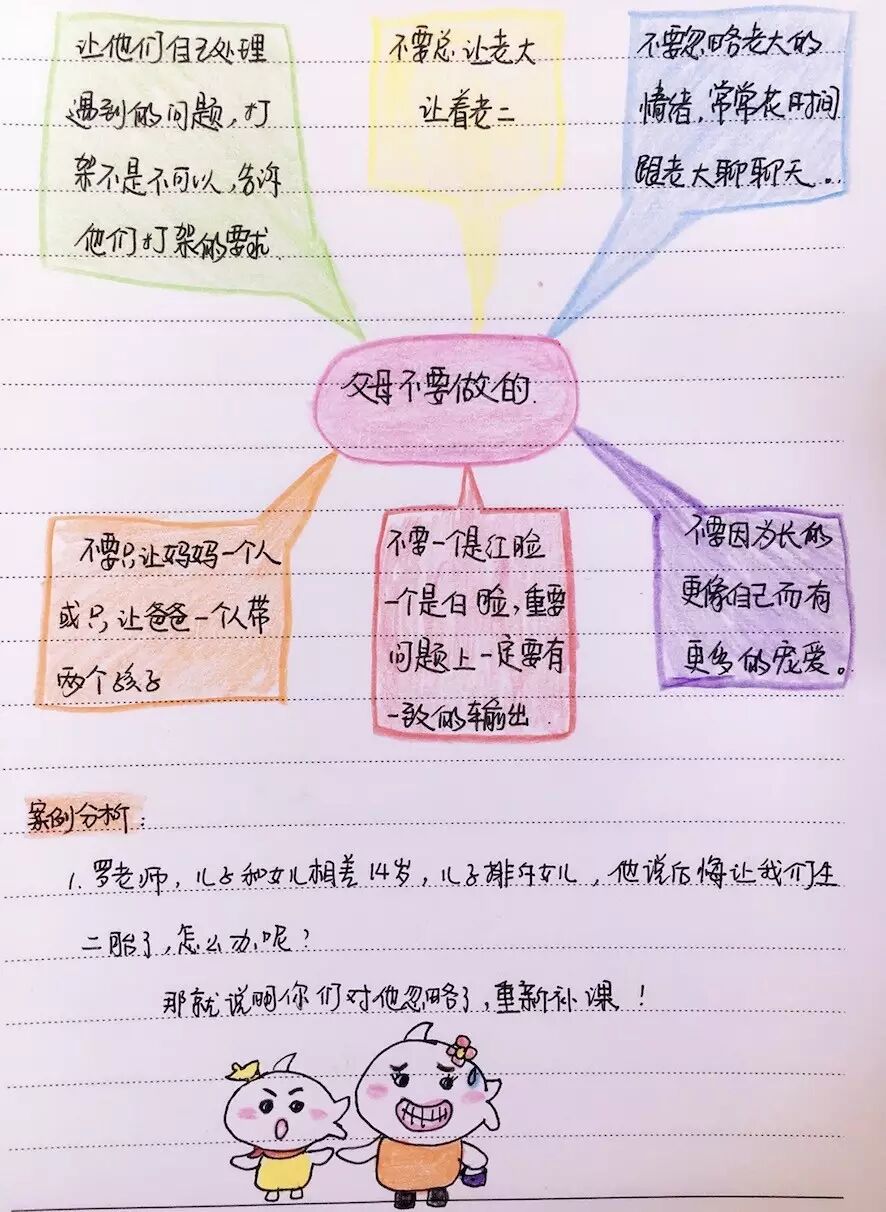 让他们自己处理
遇到的问题，打
架不是不可以，告诉
他们打架的要求
不要总让老大
让着老二
不要忽略老大的
情绪，常常花时间
跟老大聊聊天。
父母不要做的.
不要只让妈妈一个人
或只让爸爸一个人带
两个孩子
不要一个是红脸
一个是白脸，重要
问题上一定要有
一致的输出.
不要因为长的
更像自己而有
更多的宠爱。
案例分析：
1. 罗老师，儿子和女儿相差14岁，儿子排斥女儿，他说后悔让我们生
二胎了，怎么办呢？
那就说明你们对他忽略了，重新补课！